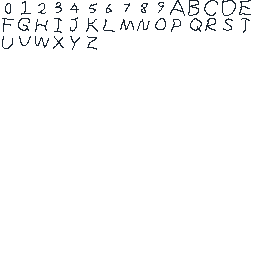 0 1 2 3 4 5 6 7 8 9 A B C D E
F G H I J K L M N O P Q R S T
U V W X Y Z